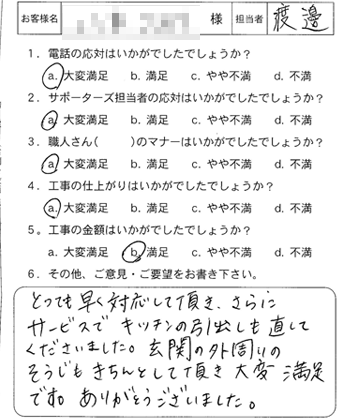 お客様名 様 担当者 渡邉
1. 電話の応対はいかがでしたでしょうか?
a. 大変満足 b. 満足 c. やや不満 d. 不満
2. サポーターズ担当者の応対はいかがでしたでしょうか?
a. 大変満足 b. 満足 c. やや不満 d. 不満
3. 職人さん( )のマナーはいかがでしたでしょうか?
a. 大変満足 b. 満足 c. やや不満 d. 不満
4. 工事の仕上がりはいかがでしたでしょうか?
a. 大変満足 b. 満足 c. やや不満 d. 不満
5. 工事の金額はいかがでしたでしょうか?
a. 大変満足 b. 満足 c. やや不満 d. 不満
6. その他、ご意見・ご要望をお書き下さい。
とっても早く対応して頂き、さらに
サービスでキッチンの引出しも直して
くださいました。玄関の外周りの
そうじもきちんとして頂き大変満足
です。ありがとうございました。